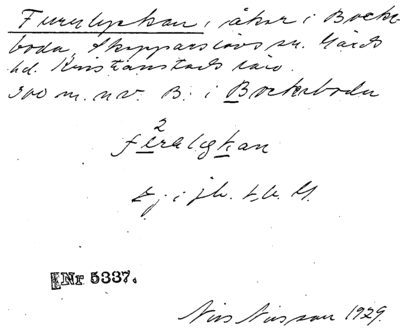 Furulyckan, åker i Bocke-
boda, Skepparslövs sn. Gärds
hd. Kristianstads län.
300 m. n.v. B. i Bockeboda
2
Ej i jb. l.u. G.
Nr 5337.
Nils Nilsson 1929.